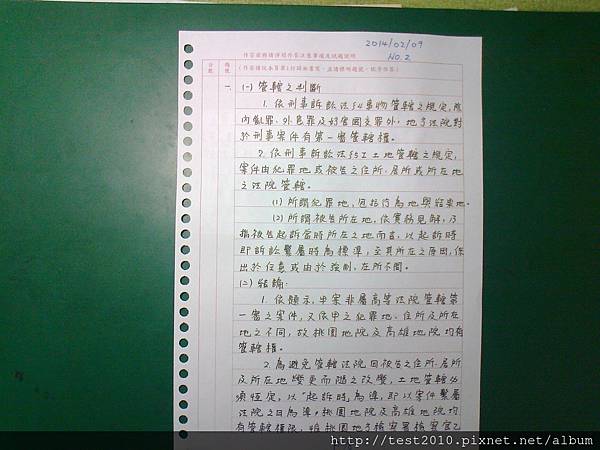 2014/02/09
NO.2
作答前務請詳閱作答注意事項及試題說明
分數
題號
(作答請從本頁第1行開始書寫,並請標明題號,依序作答)
一、
(一)管轄之判斷
1.依刑事訴訟法§4事物管轄之規定,除
內亂罪、外患罪及妨害國交罪外,地方法院對
於刑事案件有第一審管轄權。
2.依刑事訴訟法§5I土地管轄之規定,
案件由犯罪地或被告之住所、居所或所在地
之法院管轄。
(1)所謂犯罪地,包括行為地與結果地。
(2)所謂被告所在地,依實務見解,乃
指被告起訴當時所在之地而言,以起訴時
即訴訟繫屬時為標準,至其所在之原因,係
出於任意或由於強制,在所不問。
(二)結論:
1.依題示,甲案非屬高等法院管轄第
一審之案件,又依甲之犯罪地、住所及所在
地之不同,故桃園地院及高雄地院均有
管轄權。
2.為避免管轄法院因被告之住所、居所
及所在地變更而隨之改變,土地管轄必
須恆定,以"起訴時"為準,即以案件繫屬
法院之日為準,桃園地院及高雄地院均
有管轄權限,惟桃園地方檢察署檢察官乙
http://test2010.pixnet.net/album